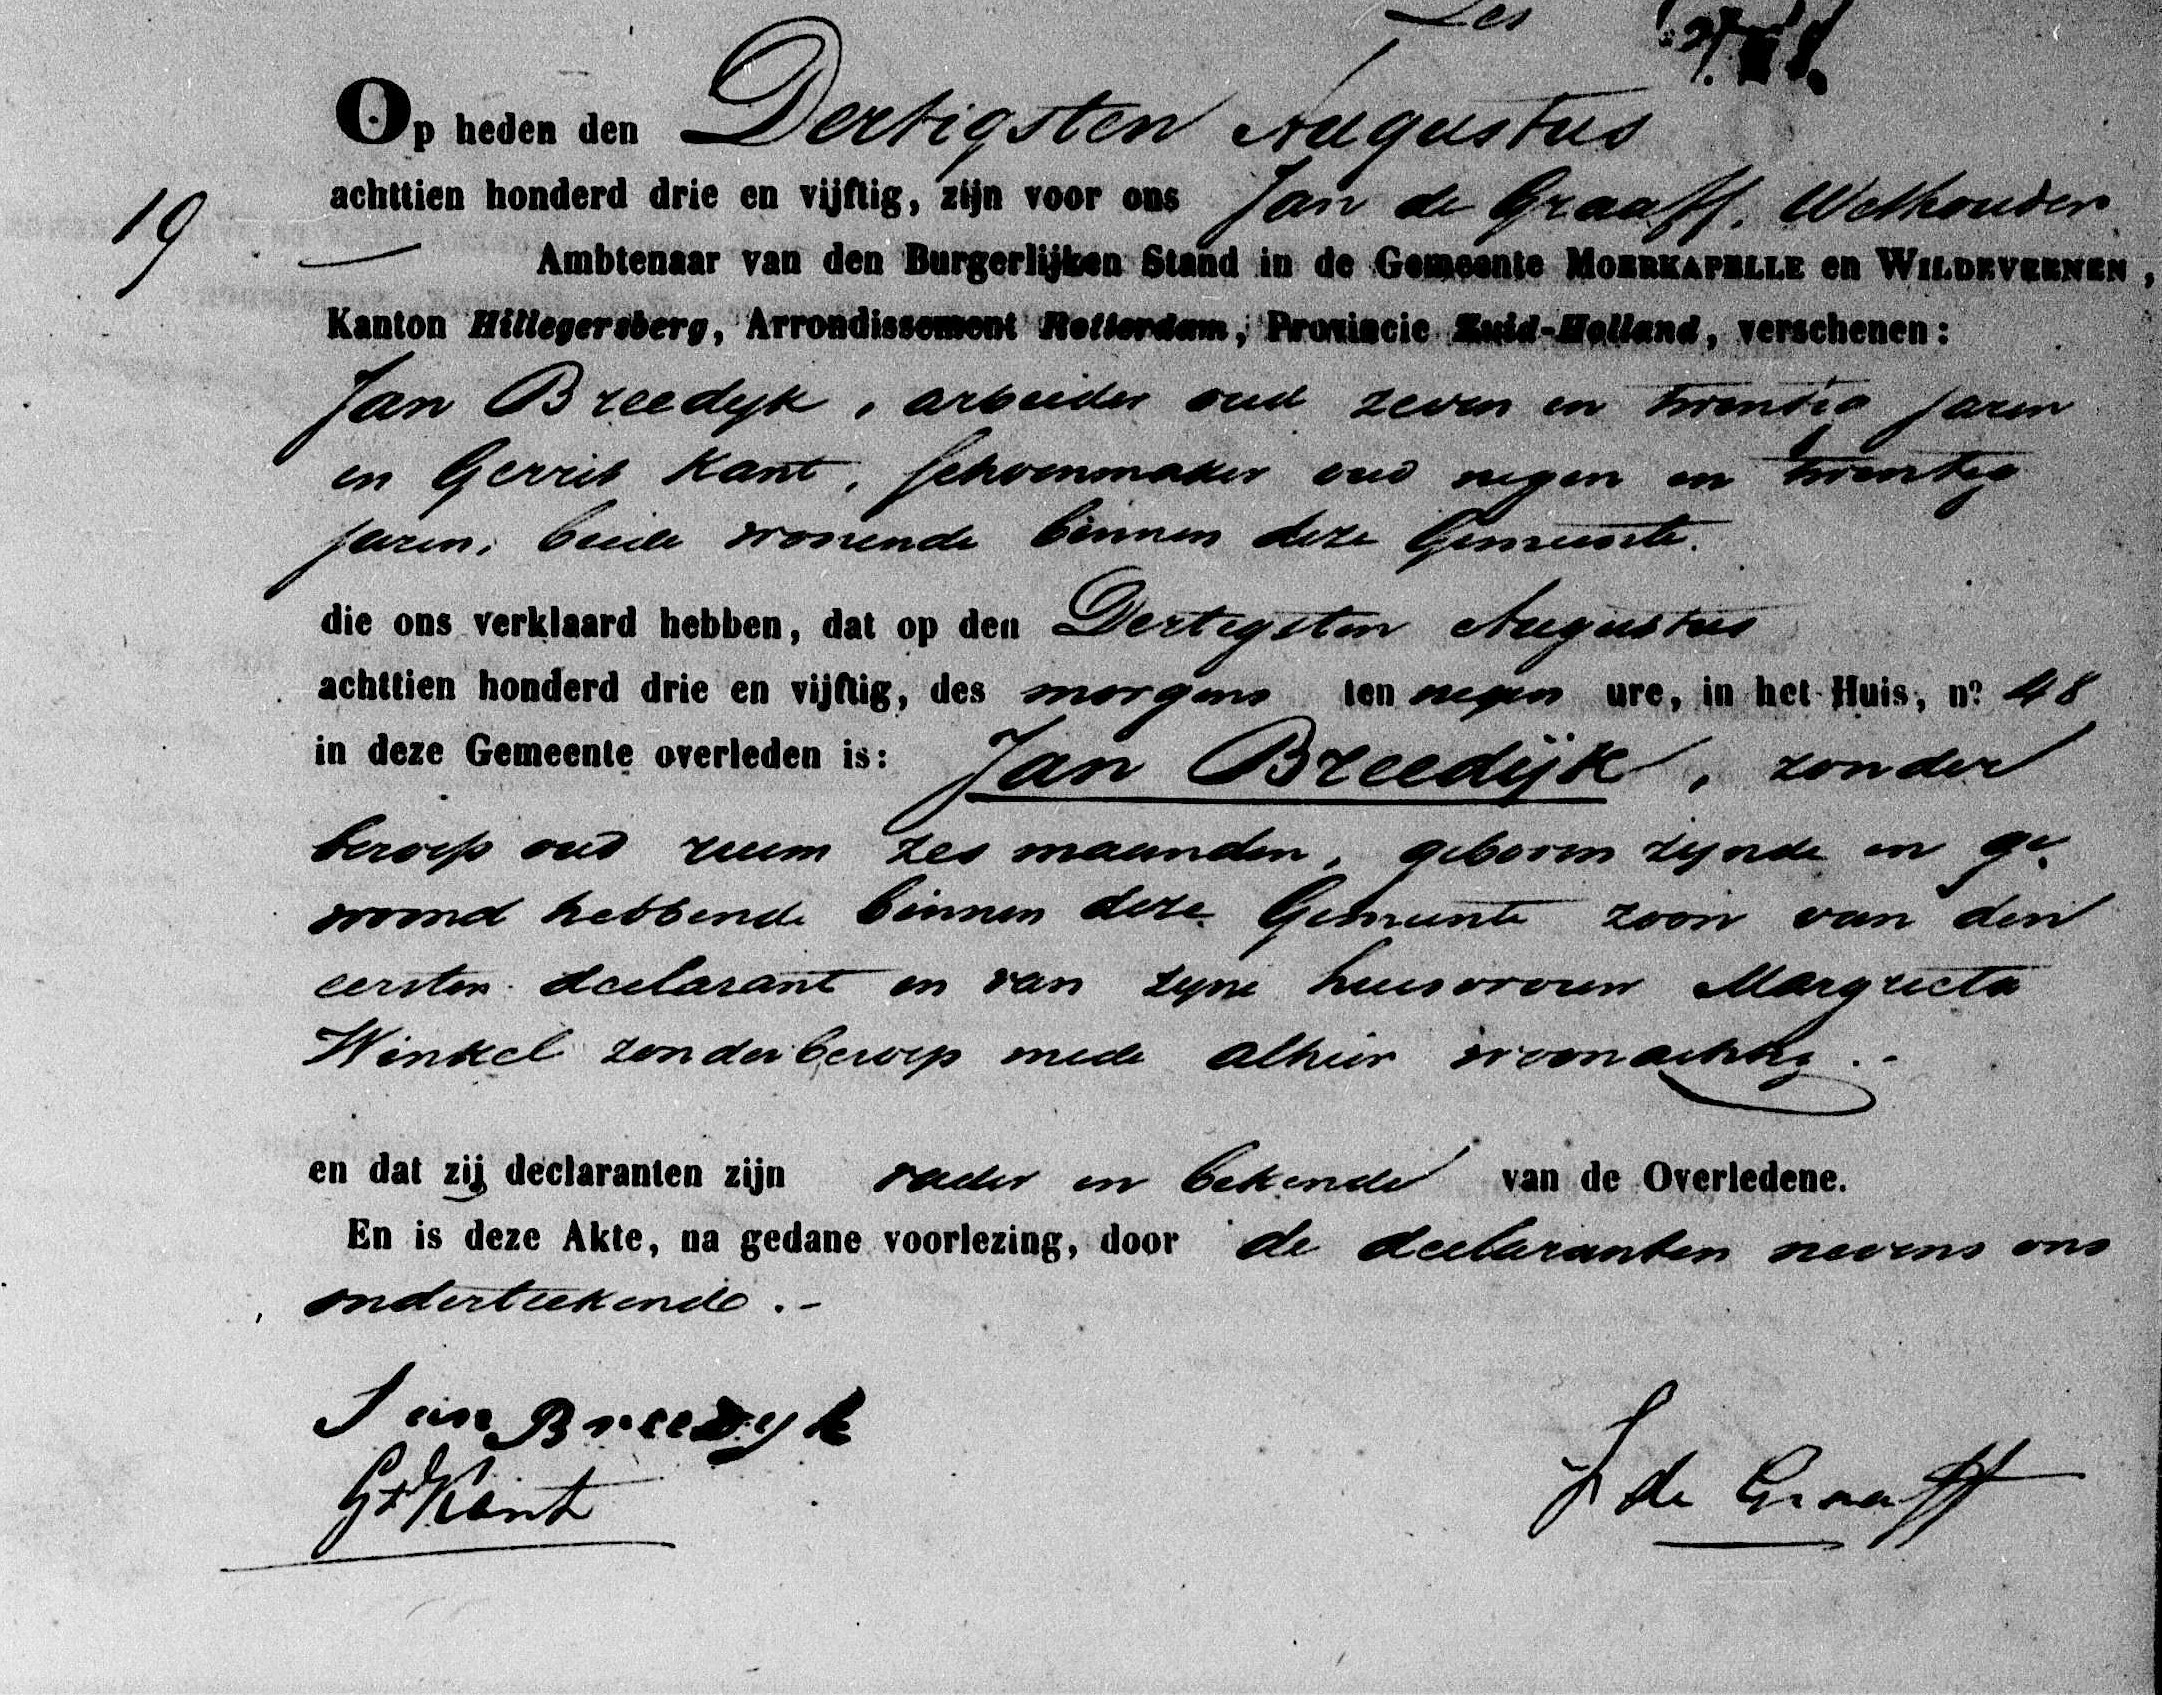 Op heden den Dertigsten Augustus
achttien honderd drie en vijftig, zijn voor ons Jan de Graaff, Wethouder
19
Ambtenaar van den Burgerlijken Stand in de Gemeente MOERKAPELLE en WILDEVEENEN,
Kanton Hillegersberg, Arrondissement Rotterdam, Provincie Zuid-Holland, verschenen:
Jan Breedyk, arbeider oud zeven en twentig jaren
en Gerrit Kant, schoenmaker oud negen en twentig
jaren, beide wonende binnen deze Gemeente.
die ons verklaard hebben, dat op den Dertigsten Augustus
achttien honderd drie en vijftig, des morgens ten negen ure, in het Huis, nº 48
in deze Gemeente overleden is: Jan Breedijk, zonder
beroep oud ruim zes maanden, geboren zijnde en ge-
woond hebbende binnen deze Gemeente zoon van den
eersten declarant en van zyne huisvrouw Margrieta
Winkel zonder beroep mede alhier woonachtig.-
en dat zij declaranten zijn vader en bekende van de Overledene.
En is deze Akte, na gedane voorlezing, door de declaranten nevens ons
onderteekend.-
Jan Breedyk
Gt Kant
J de Graaff